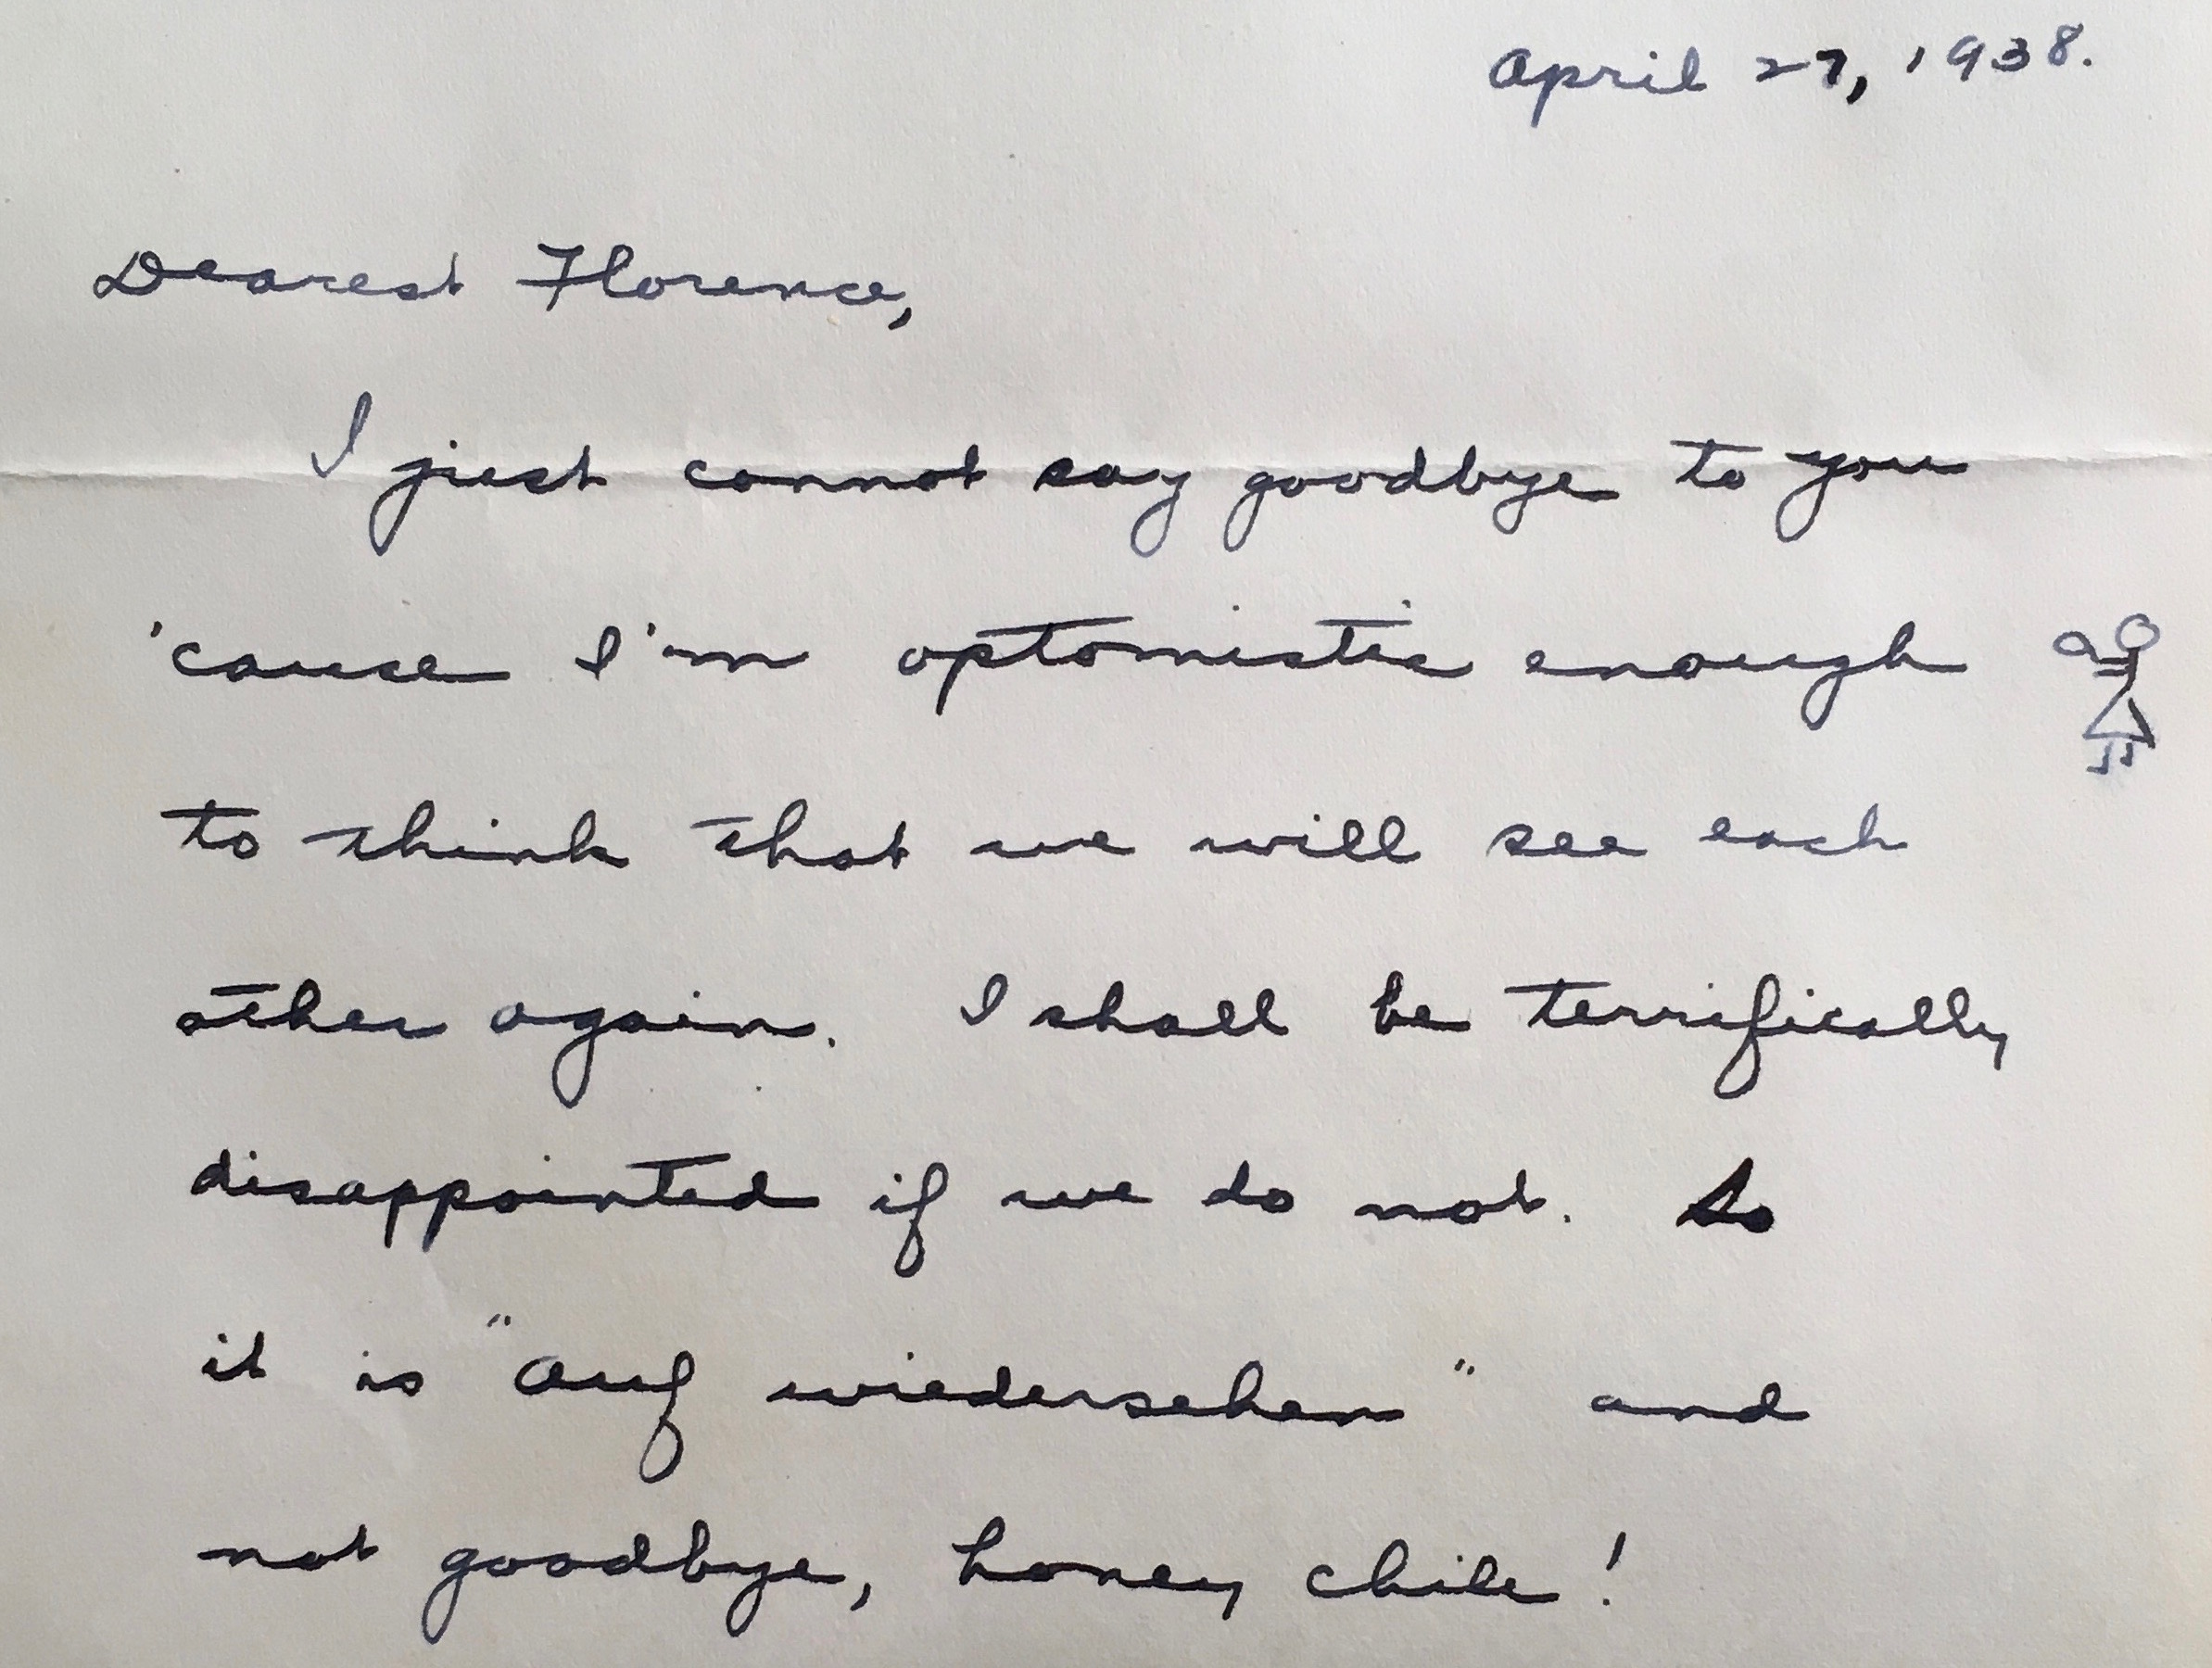 April 27, 1938.
Dearest Florence,
I just cannot say goodbye to you
'cause I'm optomistic enough
to think that we will see each
other again. I shall be terrifically
disappointed if we do not. So
it is "auf wiedersehen" and
not goodbye, honey chile!